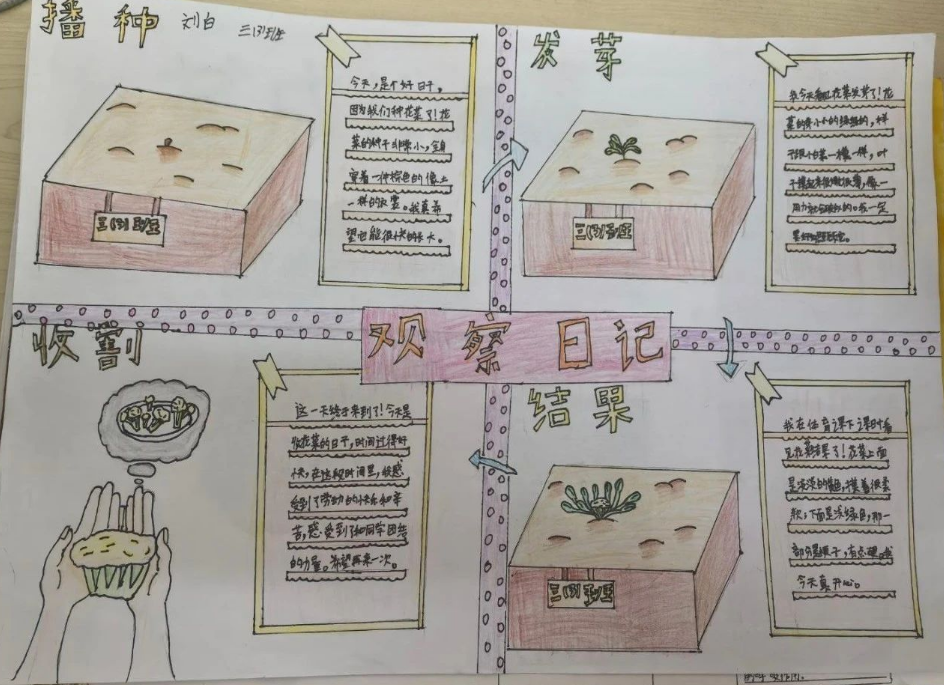 播种
刘白
三(3)班
今天，是个好日子。
因为我们种花菜了！花
菜的种子非常小，全身
穿着一件棕色的像土
一样的衣裳。我真希
望它能很快的长大。
三(3)班
发芽
我今天看见花菜发芽了！花
菜的芽小小的绿绿的，样
子跟小白菜一模一样，叶
子摸起来
用力就会 的。我一定
要好好照顾它。
三(3)班
观察日记
收割
这一天终于来到了！今天是
收花菜的日子，时间过得好
快，在这段时间里，我感
受到了劳动的快乐和辛
苦，感受到了和同学团结
的力量。希望再来一次。
结果
我在体育课下课时看
见花菜结果了！花菜上面
是淡淡的黄色，摸着很柔
软，下面是深绿色，那一
部分是根子，有点硬。我
今天真开心。
三(3)班